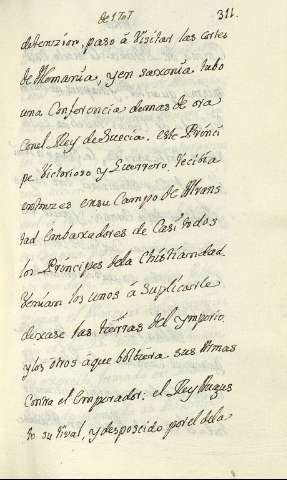 de 1707
311.
detenzion, paso à Visitar las cortes
de Alemania, y en saxonia tubo
una Conferencia de mas de ora
con el Rey de Suecia. este Princi
pe Victorioso y Guerrero, recibia
entonzes en su Campo de Alrans
tad embaxadores de Casi todos
los Principes de la Christiandad.
Venian los unos à Suplicarle
dexase las tierras del ymperio
y los otros à que bolbiera sus Armas
Contra el emperador: el Rey Augus
to su rival, y desposeido por el de la